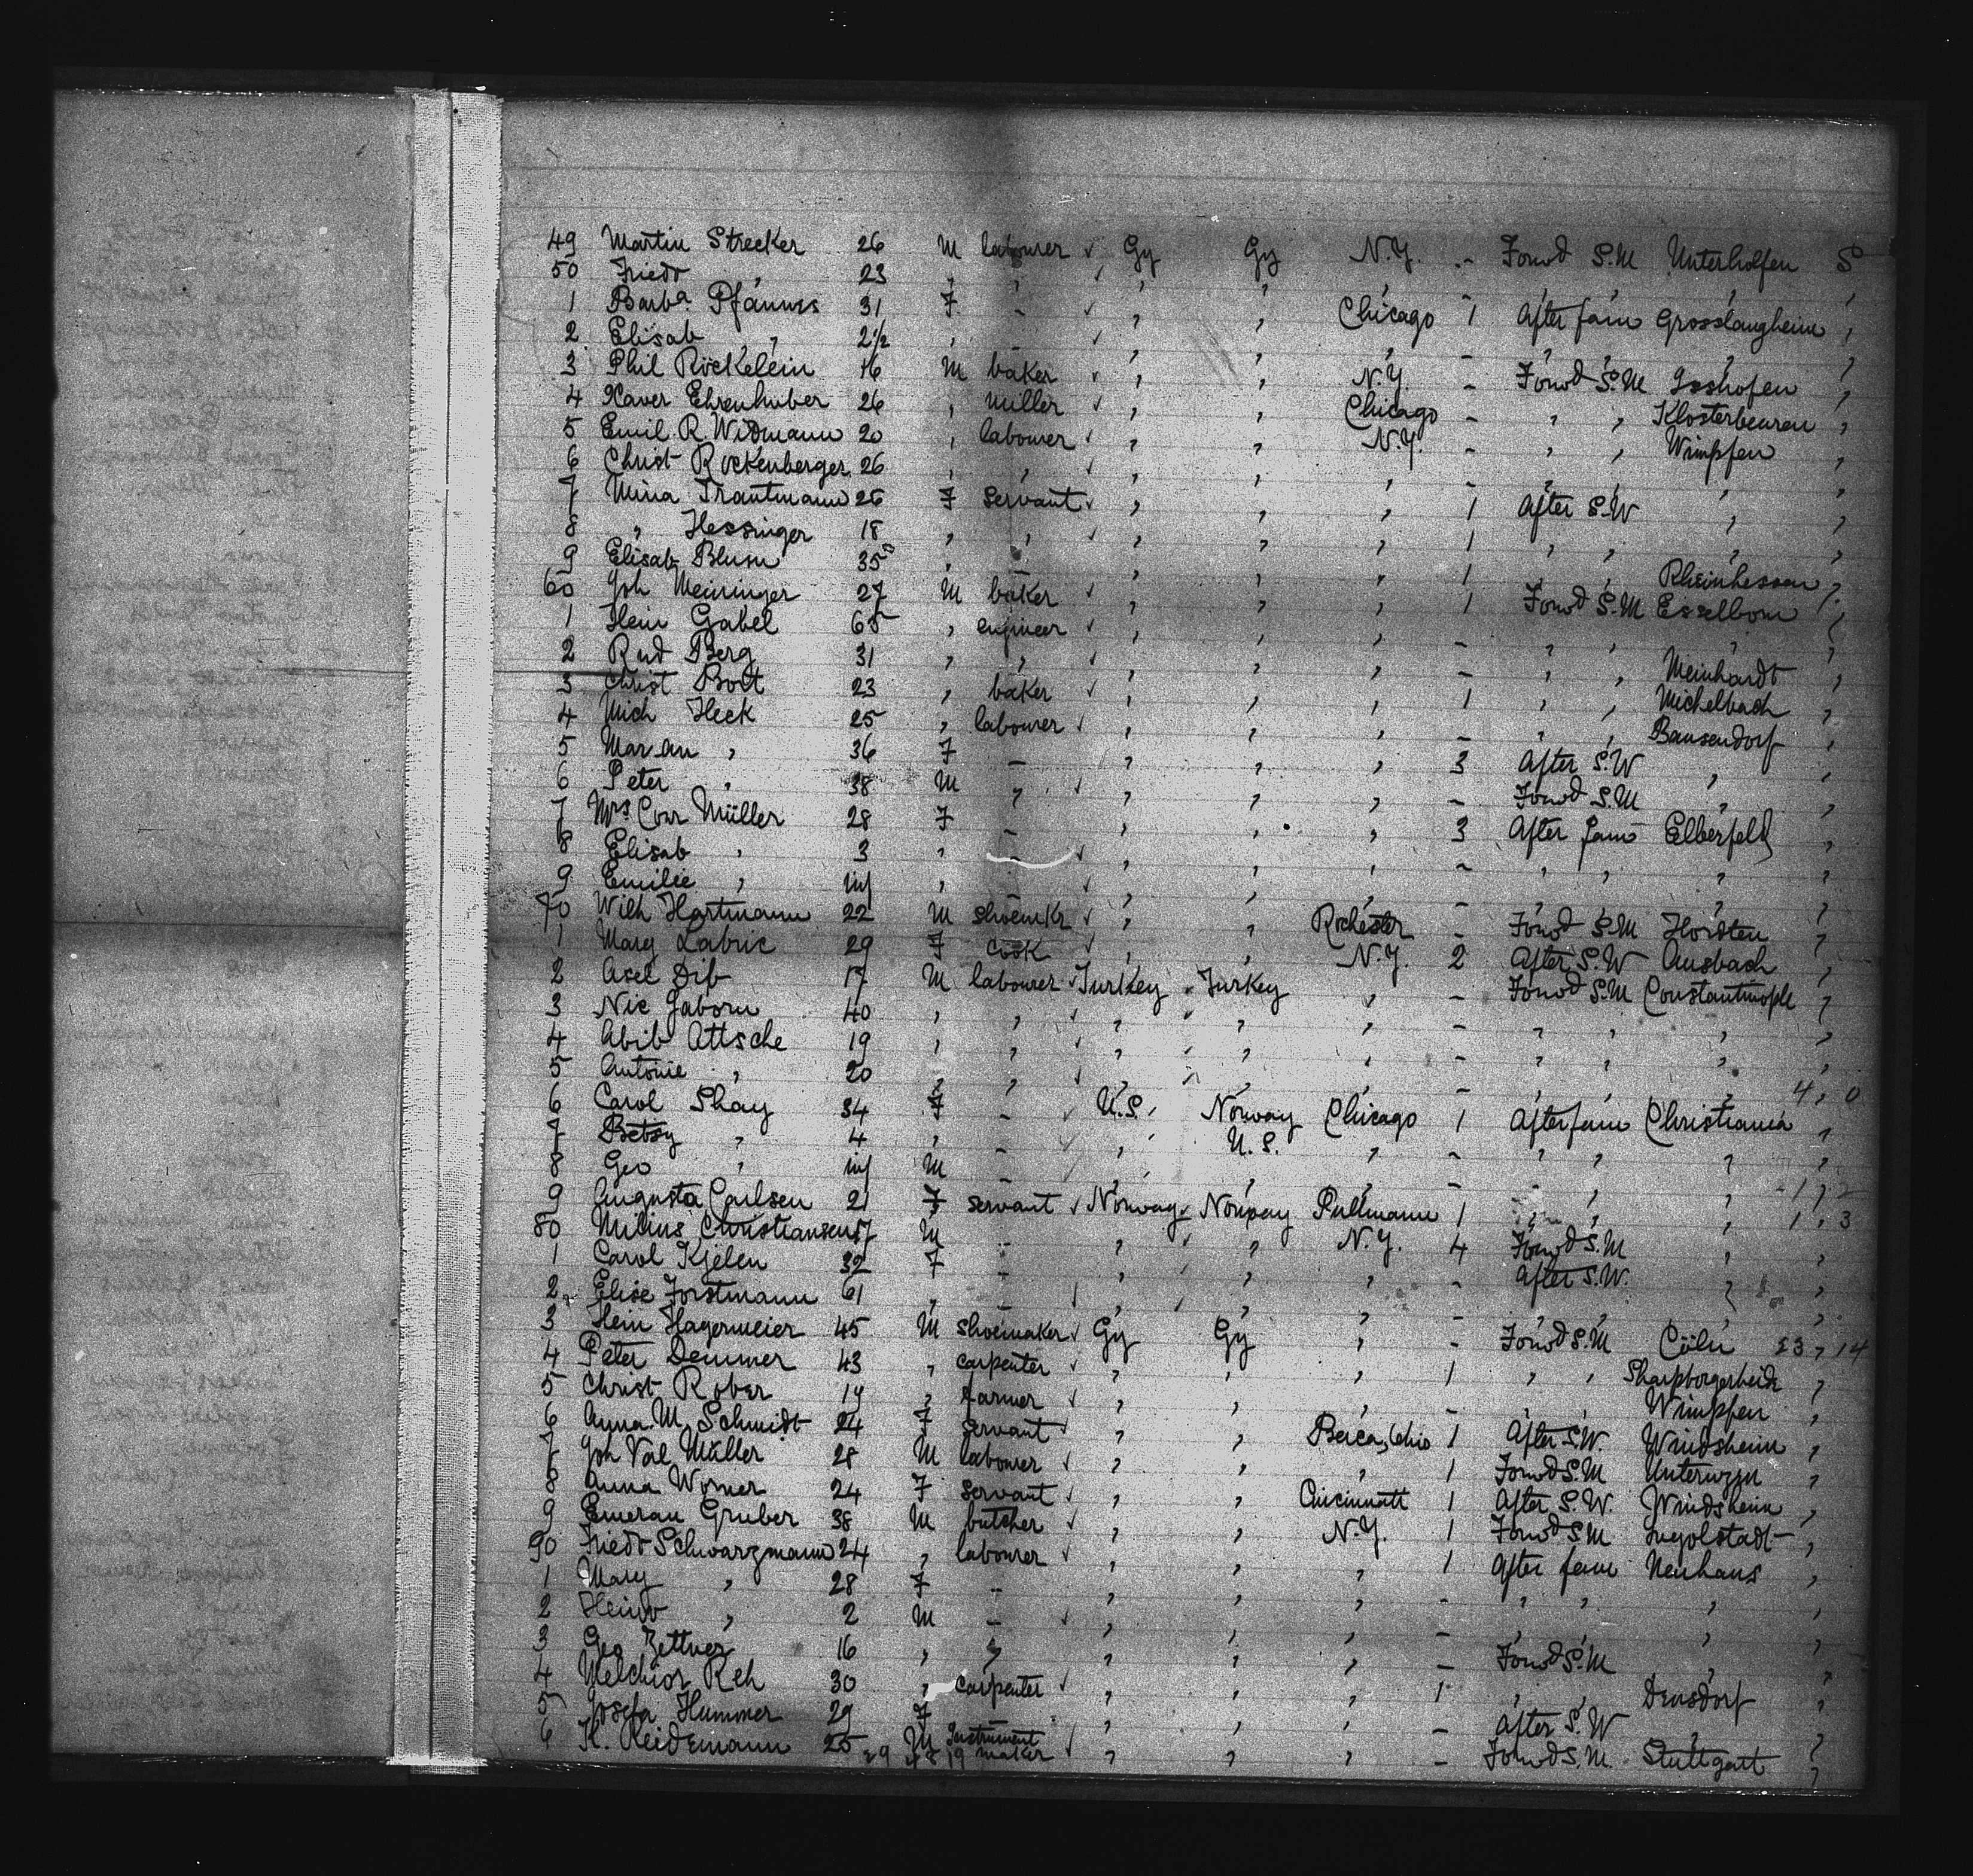 49 Martin Strecker 26 M labourer Gy Gy N.Y. - Forwd S.M Unterholfen S
50 Friedr " 23 " " " " " - " " " "
1 Barba Pfannes 31 F - " " Chicago 1 After fam Grosslangheim "
2 Elisab " 2½ " - " " " - " " " "
3 Phil Röckelein 16 M baker " " N.Y. - Forwd S.M Isshofen "
4 Xaver Ehrenhuber 26 " miller " " Chicago - " " Klosterbeuren "
5 Emil R Widmann 20 " labourer " " N.Y. - " " Wimpfen "
6 Christ Rockenberger 26 " " " " " - " " " "
7 Mina Trautmann 26 F servant " " " 1 After S.W " "
8 " Hessinger 18 " " " " " 1 " " " "
9 Elisab Blum 35 " - " " " 1 " " Rheinhessen "
60 Joh Meininger 27 M baker " " " 1 Forwd S.M Esselborn "
1 Hein Gabel 65 " engineer " " " - " " " "
2 Rud Berg 31 " " " " " - " " Meinhardt "
3 Christ Bott 23 " baker " " " 1 " " Michelbach "
4 Mich Heck 25 " labourer " " " - " " Bausendorf "
5 Mar an " 36 F - " " " 3 After S.W " "
6 Peter " 38 M " " " " - Forwd S.M " "
7 Mrs Conr Müller 28 F - " " " 3 After fam Elberfeld "
8 Elisab " 3 " - " " " - " " " "
9 Emilie " inf " - " " " - " " " "
70 Wilh Hartmann 22 M shoemkr " " Rochester - Forwd S.M Hordten "
1 Marg Labric 29 F cook " " N.Y. 2 After S.W Ansbach "
2 Asel Dib 17 M labourer Turkey Turkey " - Forwd S.M Constantinople "
3 Nic Gaborn 40 " " " " " - " " " "
4 Abib Attsche 19 " " " " " - " " " "
5 Antonie " 20 " " " " " - " " " 4, 0
6 Carol Shay 34 F - U.S. Norway Chicago 1 After fam Christiania "
7 Betsy " 4 " - " U.S. " - " " " "
8 Geo " inf M - " " " - " " " 1, 2
9 Augusta Carlsen 21 F servant Norway Norway Pullmann 1 " " " 1, 3
80 Milius Christiansen 17 M - " " N.Y. 4 Forwd S.M " "
1 Carol Kjelen 32 F - " " " - After S.W. " "
2 Elise Forstmann 61 " - " " " - " " " "
3 Hein Hagermeier 45 M shoemaker Gy Gy " - Forwd S.M Cöln 23, 14
4 Peter Demmer 43 " carpenter " " " 1 " " Sharpborgerheide "
5 Christ Rober 19 " farmer " " " - " " Wimpfen "
6 Anna M. Schmidt 24 F servant " " Berea, Ohio 1 After S.W. Windsheim "
7 Joh Val Müller 28 M labourer " " " 1 Forwd S.M
8 Anna Worner 24 F servant " " Cincinnati 1 After S.W. Windsheim "
9 Emeran Gruber 38 M butcher " " N.Y. 1 Forwd S.M Ingolstadt "
90 Friedr Schwarzmann 24 " labourer " " " 1 After fam Neuhaus "
1 Mary " 28 F - " " " - " " " "
2 Heinr " 2 M - " " " - " " " "
3 Geo Zettner 16 " " " " " - Forwd S.M " "
4 Melchior Reh 30 " carpenter " " " 1 " " Densdorf "
5 Josefa Hummer 29 F " " " - After S.W " "
6 K. Reidemann 25 M Instrument maker " " " - Forwd S.M. Stuttgart "
29 28 19